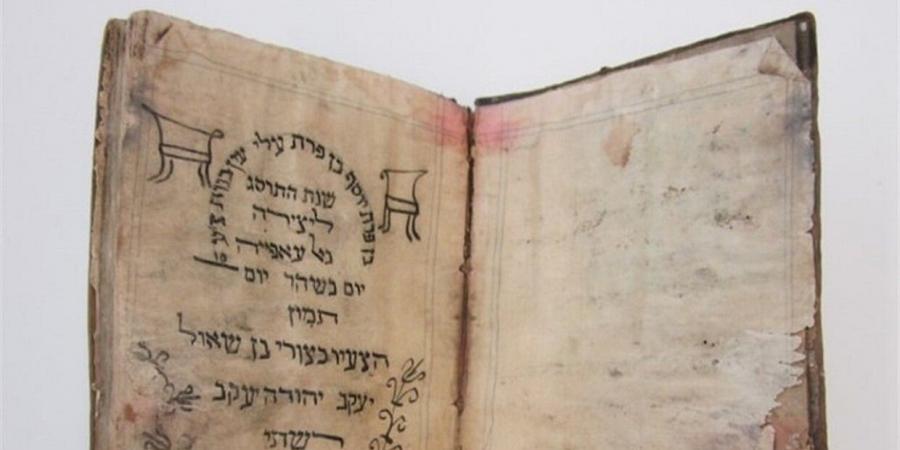 בן פרת יוסף בן פרת עילי עין בנות
שנת התרסג
ליצירה
עאפייה
יום בשהר יום
תמוז
בן שאול
יעקב יהודה יעקב
רשתי